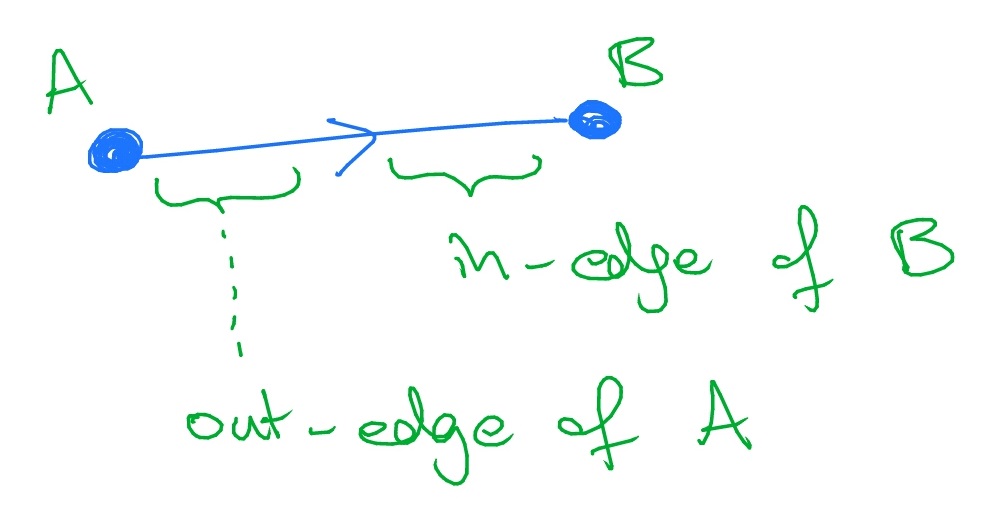 A
B
in-edge of B
out-edge of A